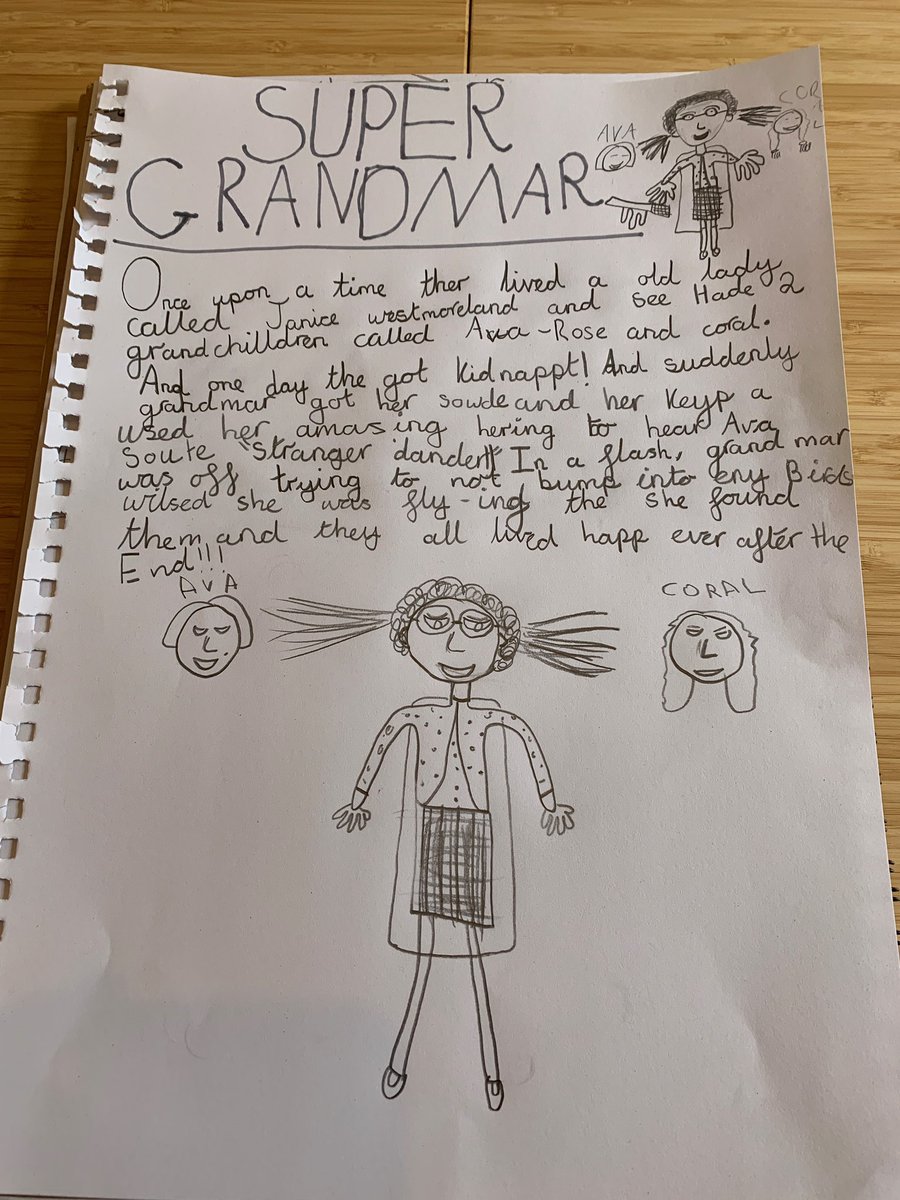 SUPER
GRANDMAR
AVA
COR
Once upon a time ther lived a old lady
called Janice westmoreland and see Hade 2
grandchilldren called Ava-Rose and coral.
And one day the got kidnappt! And suddenly
grandmar got her sowde and her Keyp a
used her amasing hering to hear Ava
Soute "stranger dander!" In a flash, grandmar
was off trying to not bump into eny Birds
wilsed she was fly-ing the she found
them and they all lived happ ever after the
End!!!
AVA
CORAL